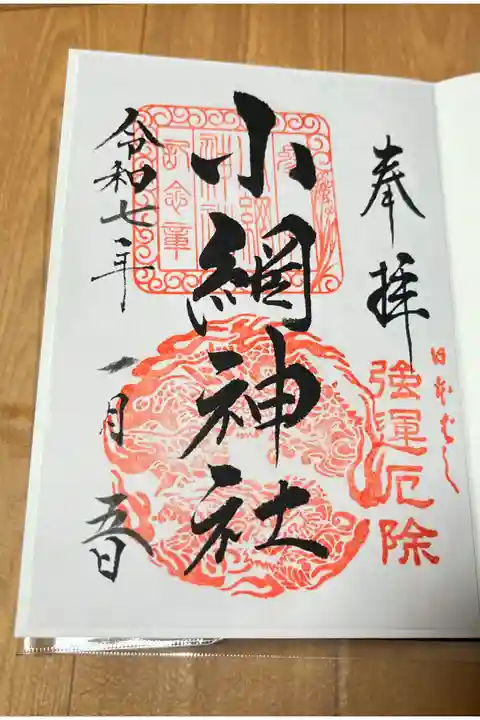 奉拝
日本ばし
強運厄除
小網神社
令和七年
一月
五日